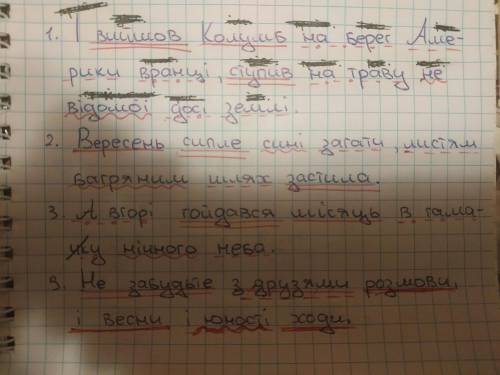 1. І вийшов Колумб на берег Аме-
рики вранці, ступив на траву не
відомої досі землі.
2. Вересень сипле сині загати, листям
багряним шлях застила.
3. А вгорі гойдався місяць в гама-
ку нічного неба.
9. Не забудьте з друзями розмови,
і весни і юності ходи.